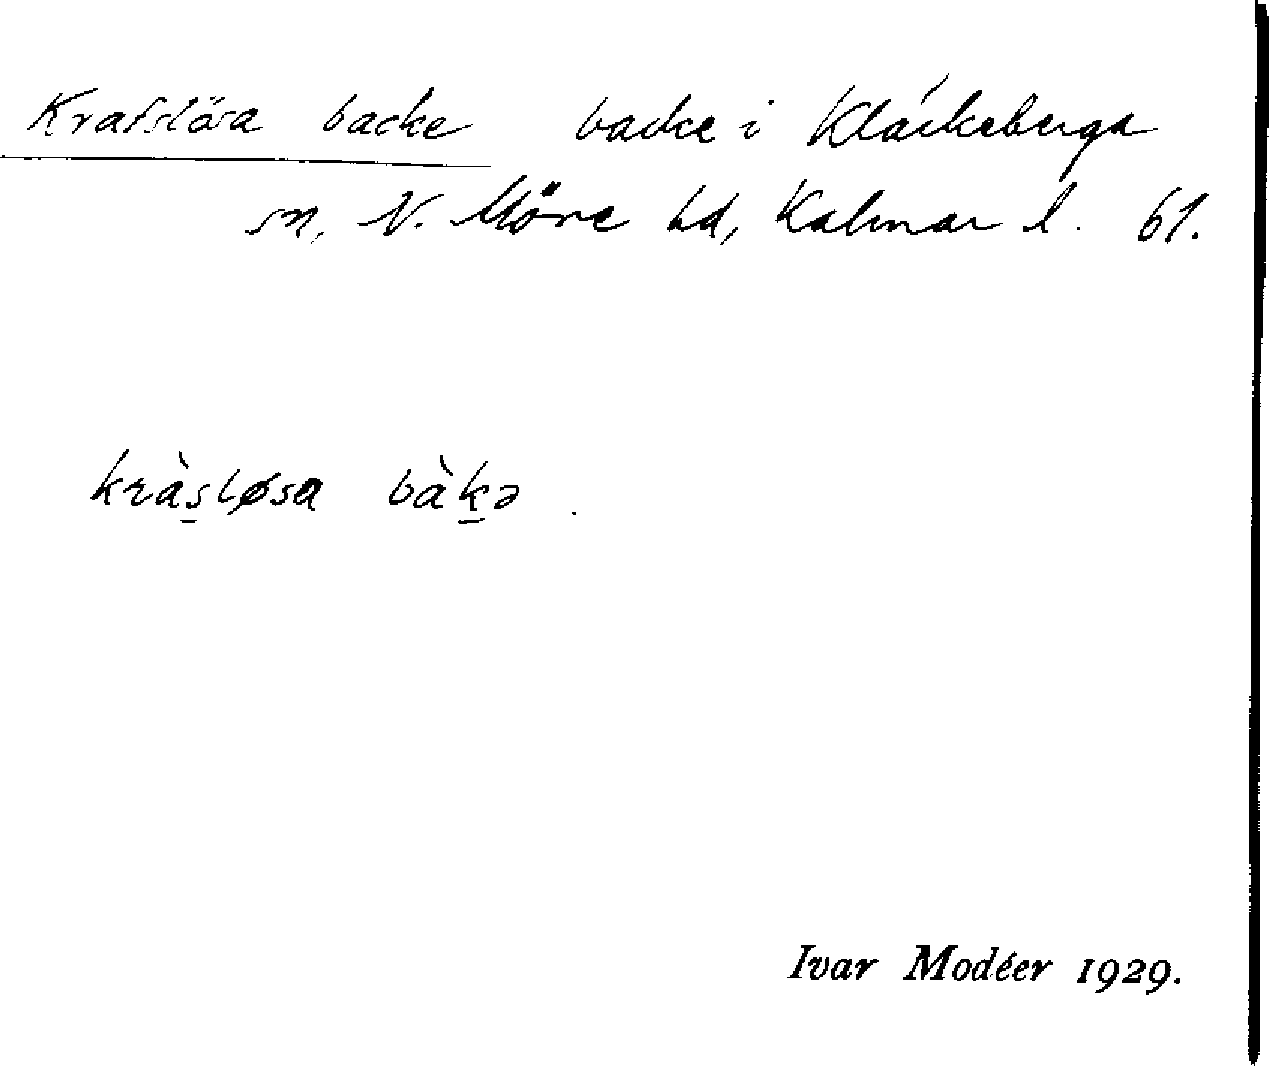 Krafslösa backe backe i Kläckeberga
sn, N. Möre hd, Kalmar l. 61.
kràs̲løsa bàk̲ə.
Ivar Modéer 1929.